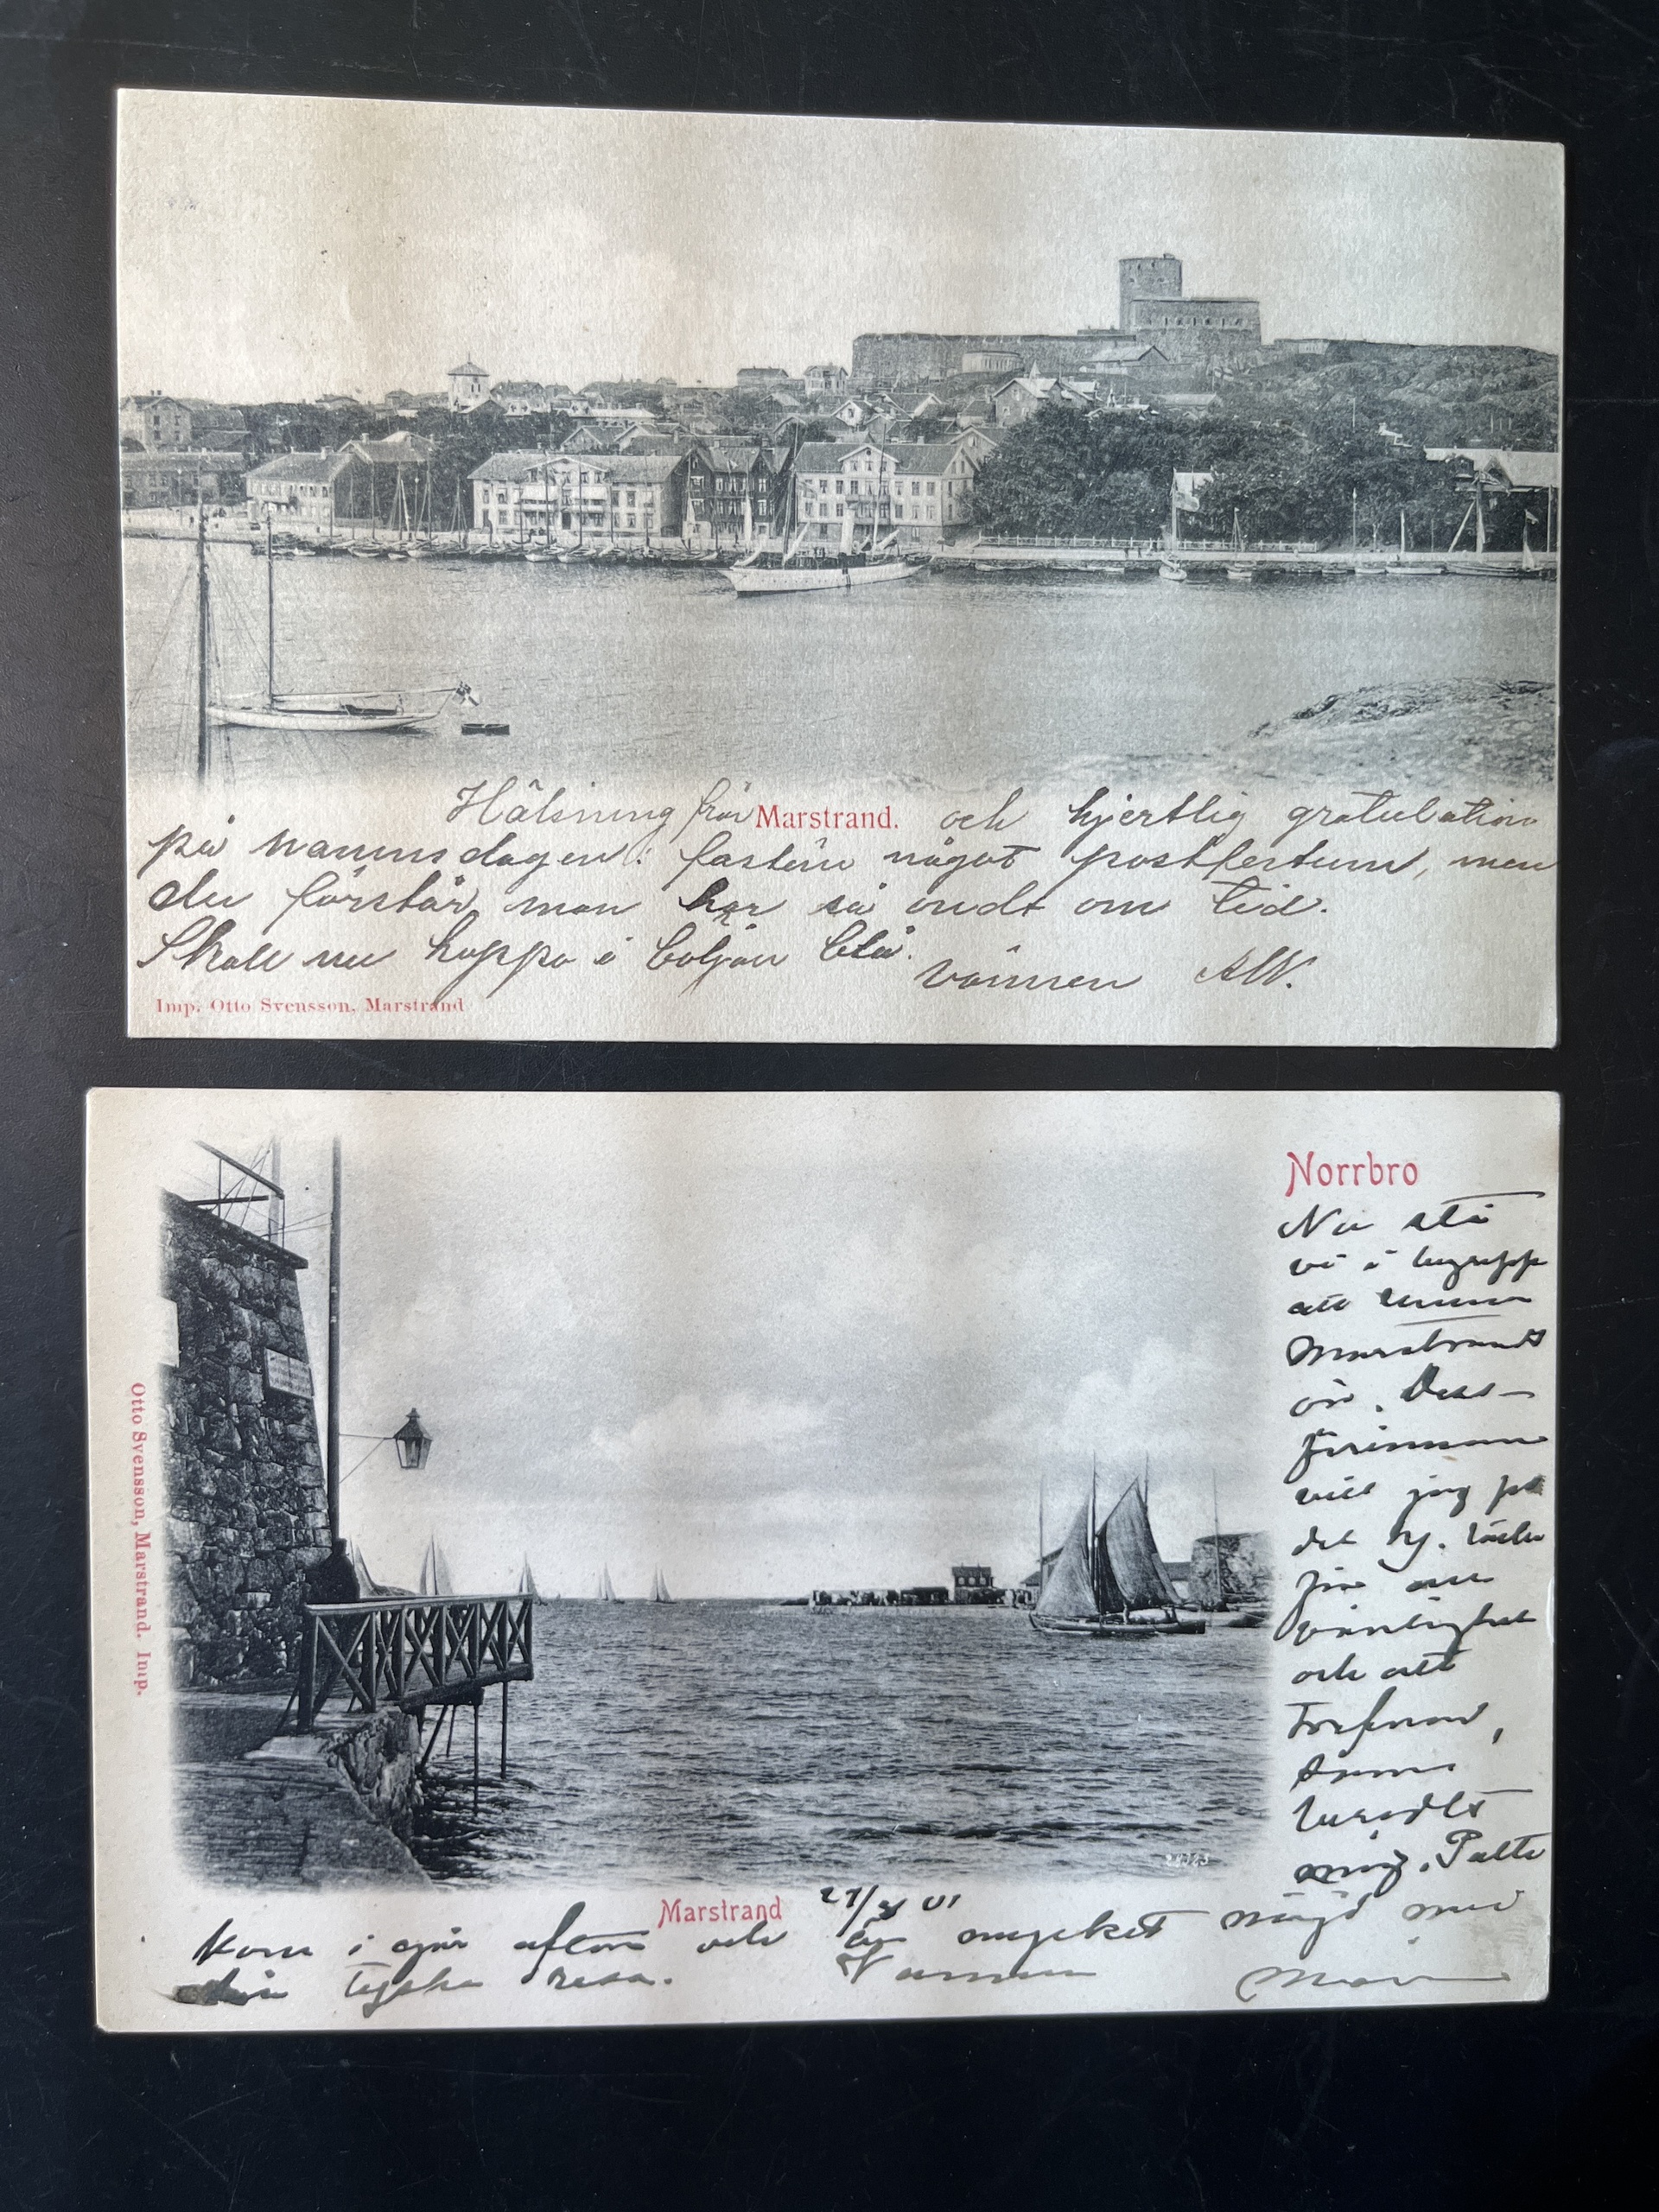 Hälsning från Marstrand. och hjertlig gratulation
på namnsdagen: fastän något postfestum, men
du förstår, man har så ondt om tid.
Skall nu hoppa i böljan blå.
vännen AW.
Imp. Otto Svensson, Marstrand
Norrbro
Nu stå
vi i begrepp
att lemna
Marstrands
ön. Dess-
förinnan
vill jag på
det hj. tacka
för all
vänlighet
och all
trefnad,
som
beredts
mig. Putte
Otto Svensson, Marstrand. Imp.
Marstrand 27/8 01
kom i går afton och är mycket nöjd med
sin tyska resa. Vännen